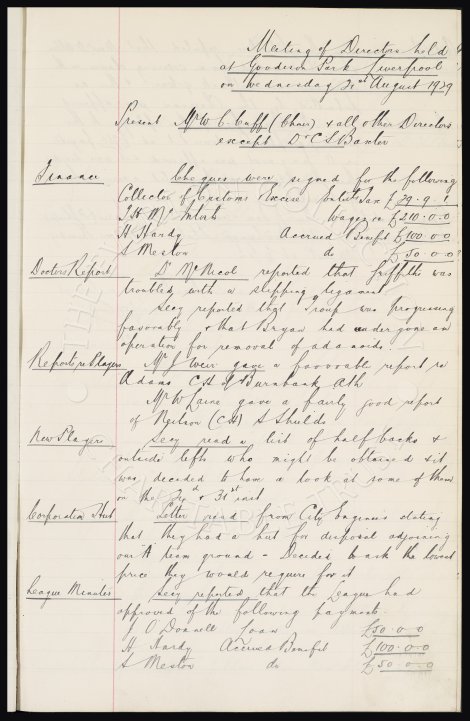 Meeting of Directors held
at Goodison Park Liverpool
on Wednesday 21st August 1929
Present Mr W. C. Cuff (Chair) & all other Directors
except Dr C S Baxter
Finance Cheques were signed for the following
Collector of Customs & Excise Entert Tax £29. 9. 1
T H McIntosh Wages £210. 0. 0
H Hardy Accrued Benefit £100. 0. 0
S Meston do £50. 0. 0
Doctors Report Dr McNicol reported that Griffiths was
troubled with a slipping ligament
Secy reported that Troup was progressing
favorably & that Bryan had undergone an
operation for removal of adanoids.
Reports re Players Mr J Weir gave a favorable report re
Adams C.H. Burnbank Ath
Mr W gave a fairly good report
of Neilson (C.H) S Shields
New Players Secy read a list of half backs &
outside lefts who might be obtained & it
was decided to have a look at some of them
on the & 31st inst
Corporation Hut Letter read from City Engineer stating
that they had a hut for disposal adjoining
our "A" team ground - Decided to ask the lowest
price they would require for it
League Minutes Secy reported that the League had
approved of the following payments.
J O'Donnell Loan £50. 0. 0
H Hardy Accrued Benefit £100. 0. 0
S Meston do £50. 0. 0